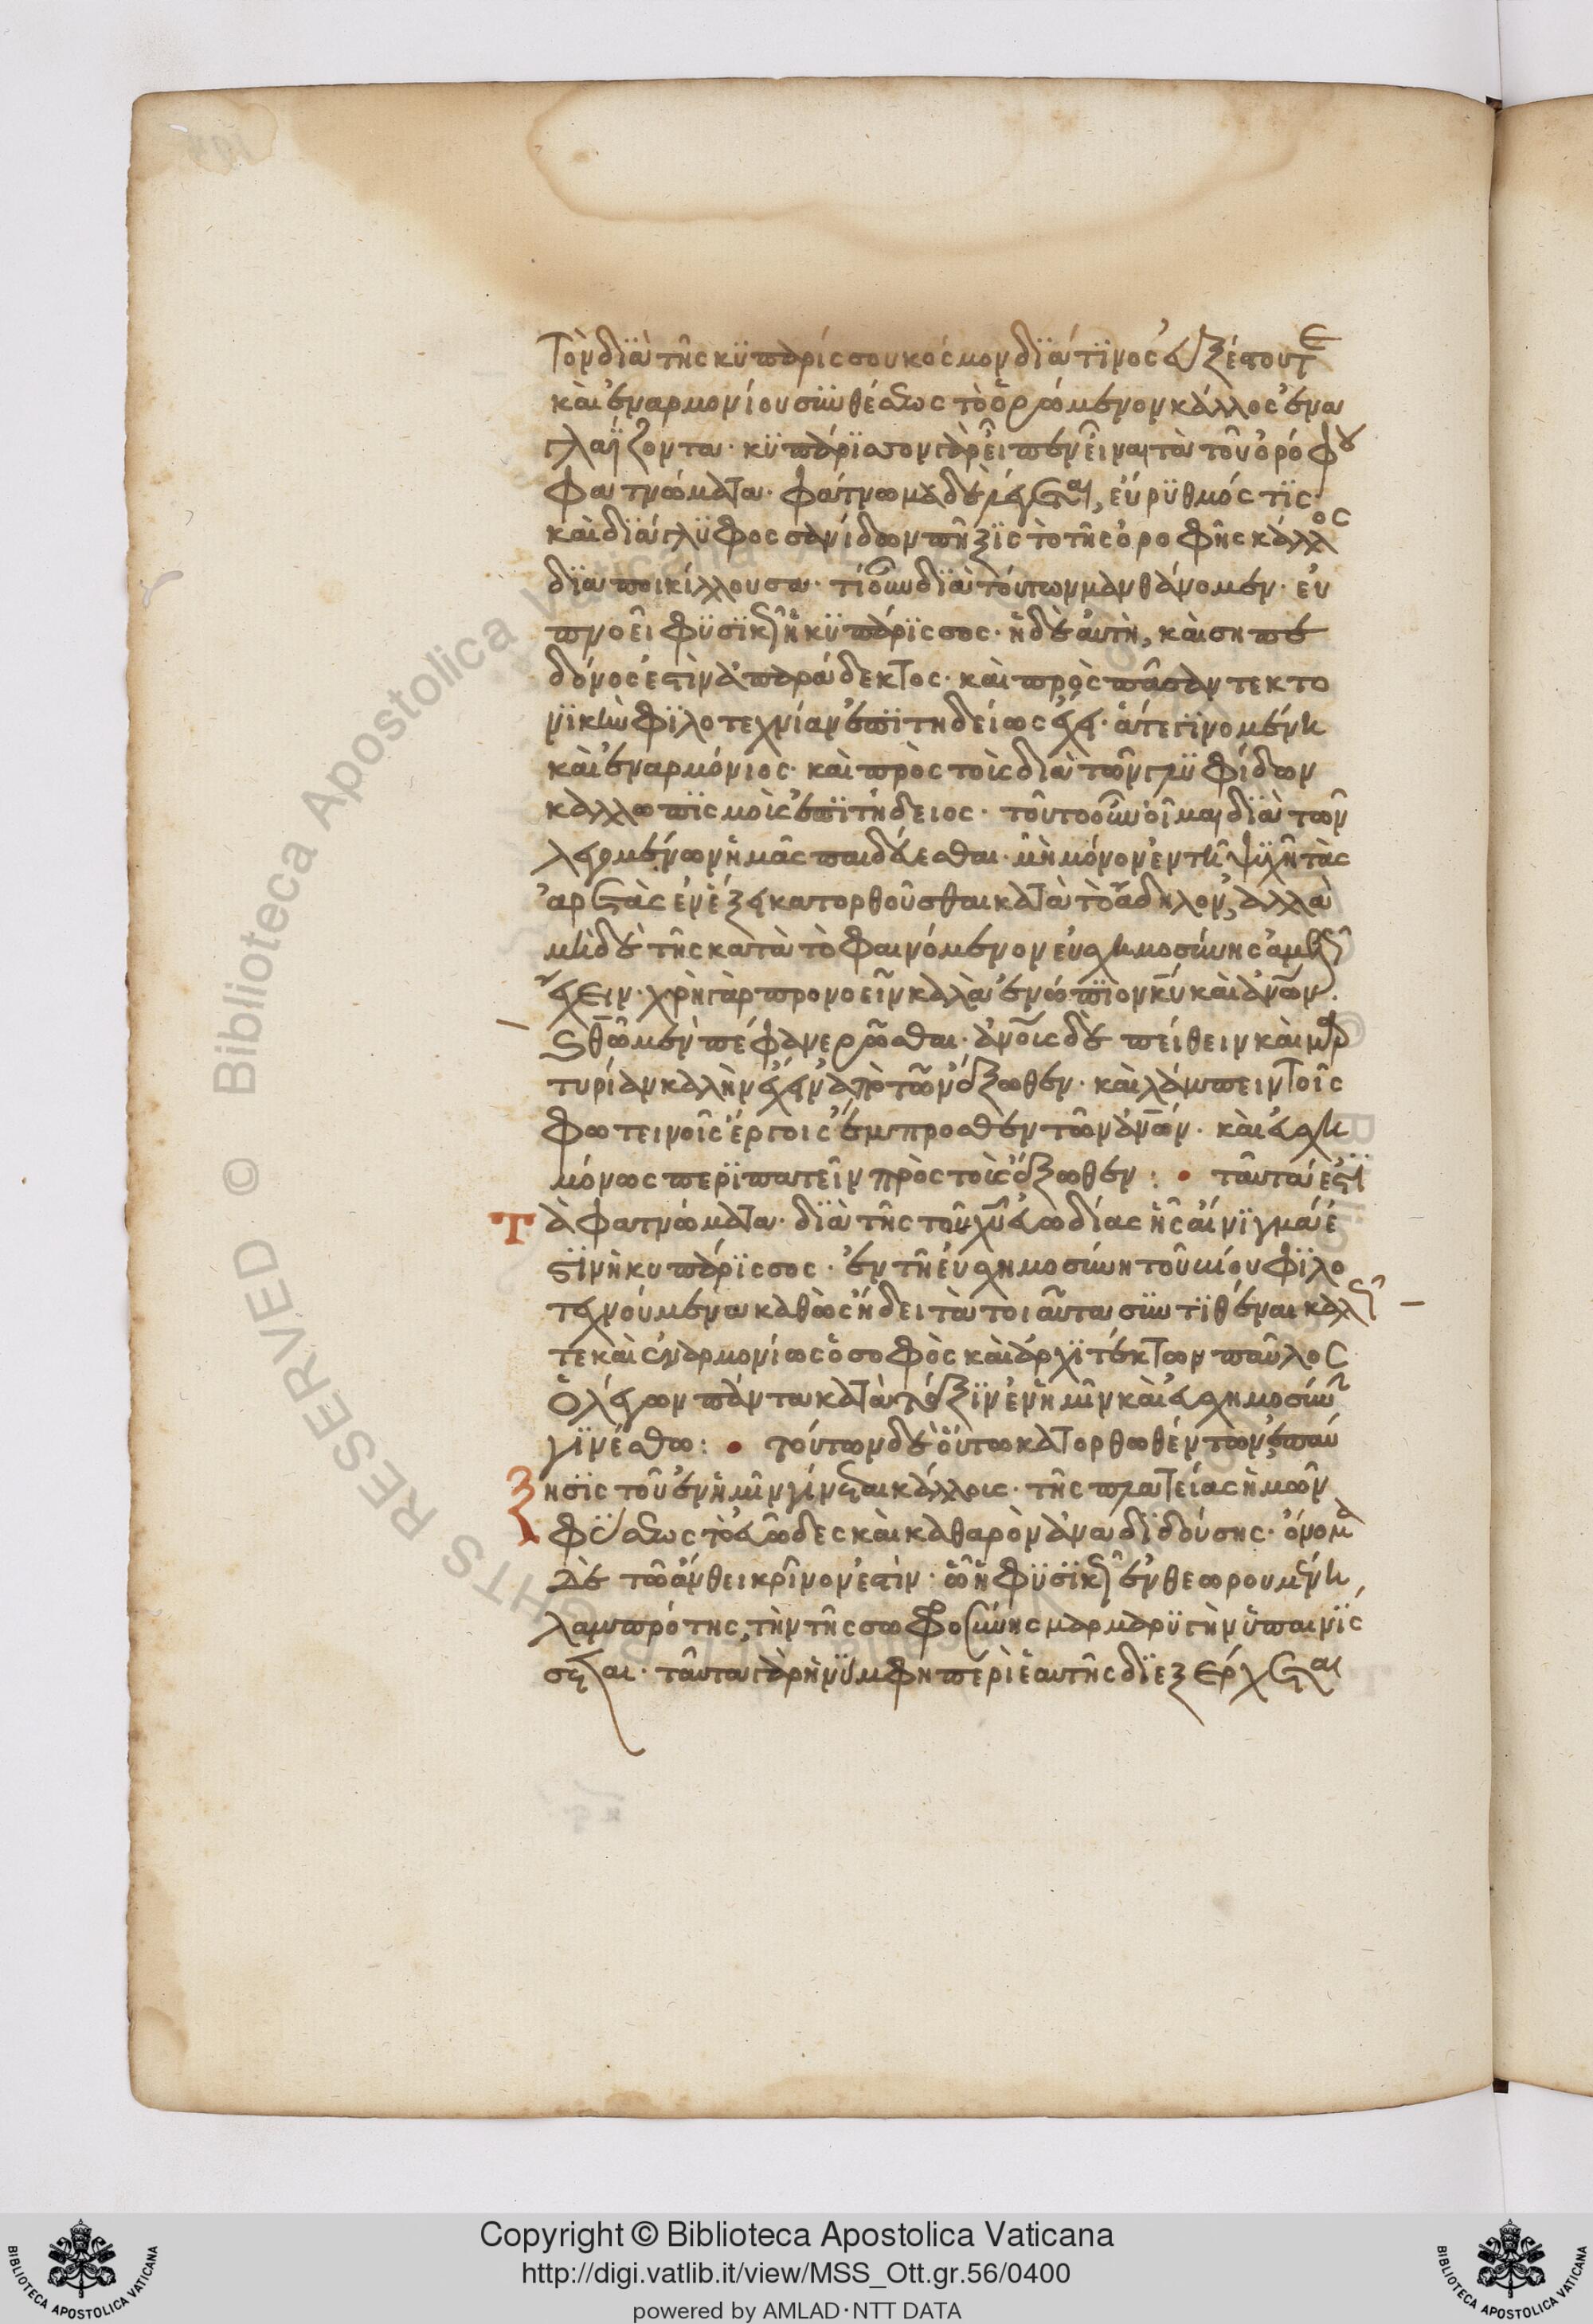 Τὸν διὰ τῆς κυπαρίσσου κόσμον διά τινος εὐξέστου τε
καὶ ἐναρμονίου συνθέσεως τὸ ὁρώμενον κάλλος ἐνα
γλαΐζοντα· κυπάρισσον γὰρ εἶπεν εἶναι τὰ τοῦ ὀρόφου
φατνώματα· φάτνωμα δὲ λέγεται, εὔρυθμός τις
καὶ διάγλυφος σανίδων πῆξις τὸ τῆς ὀροφῆς κάλλος
διαποικίλλουσα· τί οὖν διὰ τούτων μανθάνομεν· εὐ
πνοεῖ φυσικῶς ἡ κυπάρισσος· ἡ δὲ αὐτὴ, καὶ σηπε
δόνος ἐστὶν ἀπαράδεκτος· καὶ πρὸς πᾶσαν τεκτο
νικὴν φιλοτεχνίαν ἐπιτηδείως ἔχει· ἅτε γινομένη
καὶ ἐναρμόνιος· καὶ πρὸς τοῖς διὰ τῶν γλυφίδων
καλλωπισμοῖς ἐπιτήδειος· τοῦτο οὖν οἶμαι διὰ τῶν
λεγομένων ἡμᾶς παιδεύεσθαι· μὴ μόνον ἐν τῇ ψυχῇ τὰς
ἀρετὰς ἐν ἕξει κατορθοῦσθαι κατὰ τὸ ἄδηλον, ἀλλὰ
μηδὲ τῆς κατὰ τὸ φαινόμενον εὐσχημοσύνης ἀμελῶς
ἔχειν· χρὴ γὰρ προνοεῖν καλὰ ἐνώπιον κυ καὶ ἀνων·
θω μὲν πεφανερῶσθαι· ἀνοις δὲ πείθειν καὶ μαρ
τυρίαν καλὴν ἔχειν ἀπὸ τῶν ἔξωθεν· καὶ λάμπειν τοῖς
φωτεινοῖς ἔργοις ἔμπροσθεν τῶν ἀνων· καὶ εὐσχη
μόνως περιπατεῖν πρὸς τοῖς ἔξωθεν: • ταῦτά ἐστι
Τὰ φατνώματα· διὰ τῆς τοῦ χυ εὐωδίας ἧς αἴνιγμά ἐ
στιν ἡ κυπάρισσος· ἐν τῇ εὐσχημοσύνῃ τοῦ βίου φιλο
τεχνούμενα καθὼς ᾔδει τὰ τοιαῦτα συντιθέναι καλῶς
τε καὶ ἐναρμονίως ὁ σοφὸς καὶ ἀρχιτέκτων παῦλος
ὁ λέγων πάντα κατὰ τάξιν ἐν ἡμῖν καὶ εὐσχημοσύνην
γινέσθω: • τούτων δὲ οὕτω κατορθωθέντων, ἐπαύ
ξησις τοῦ ἐν ἡμῖν γίνεται κάλλους· τῆς πλατείας ἡμῶν
φύσεως τὸ εὐῶδες καὶ καθαρὸν ἄνθος διδούσης· ὄνομα
δὲ τῷ ἄνθει κρίνον ἐστὶν· ᾧ ἡ φυσικῶς ἐνθεωρουμένη
λαμπρότης, τὴν τῆς σωφροσύνης μαρμαρυγὴν ὑπαινίσ
σεται· ταῦτα γὰρ ἡ νύμφη περὶ ἑαυτῆς διεξέρχεται
Copyright © Biblioteca Apostolica Vaticana
http://digi.vatlib.it/view/MSS_Ott.gr.56/0400
powered by AMLAD·NTT DATA